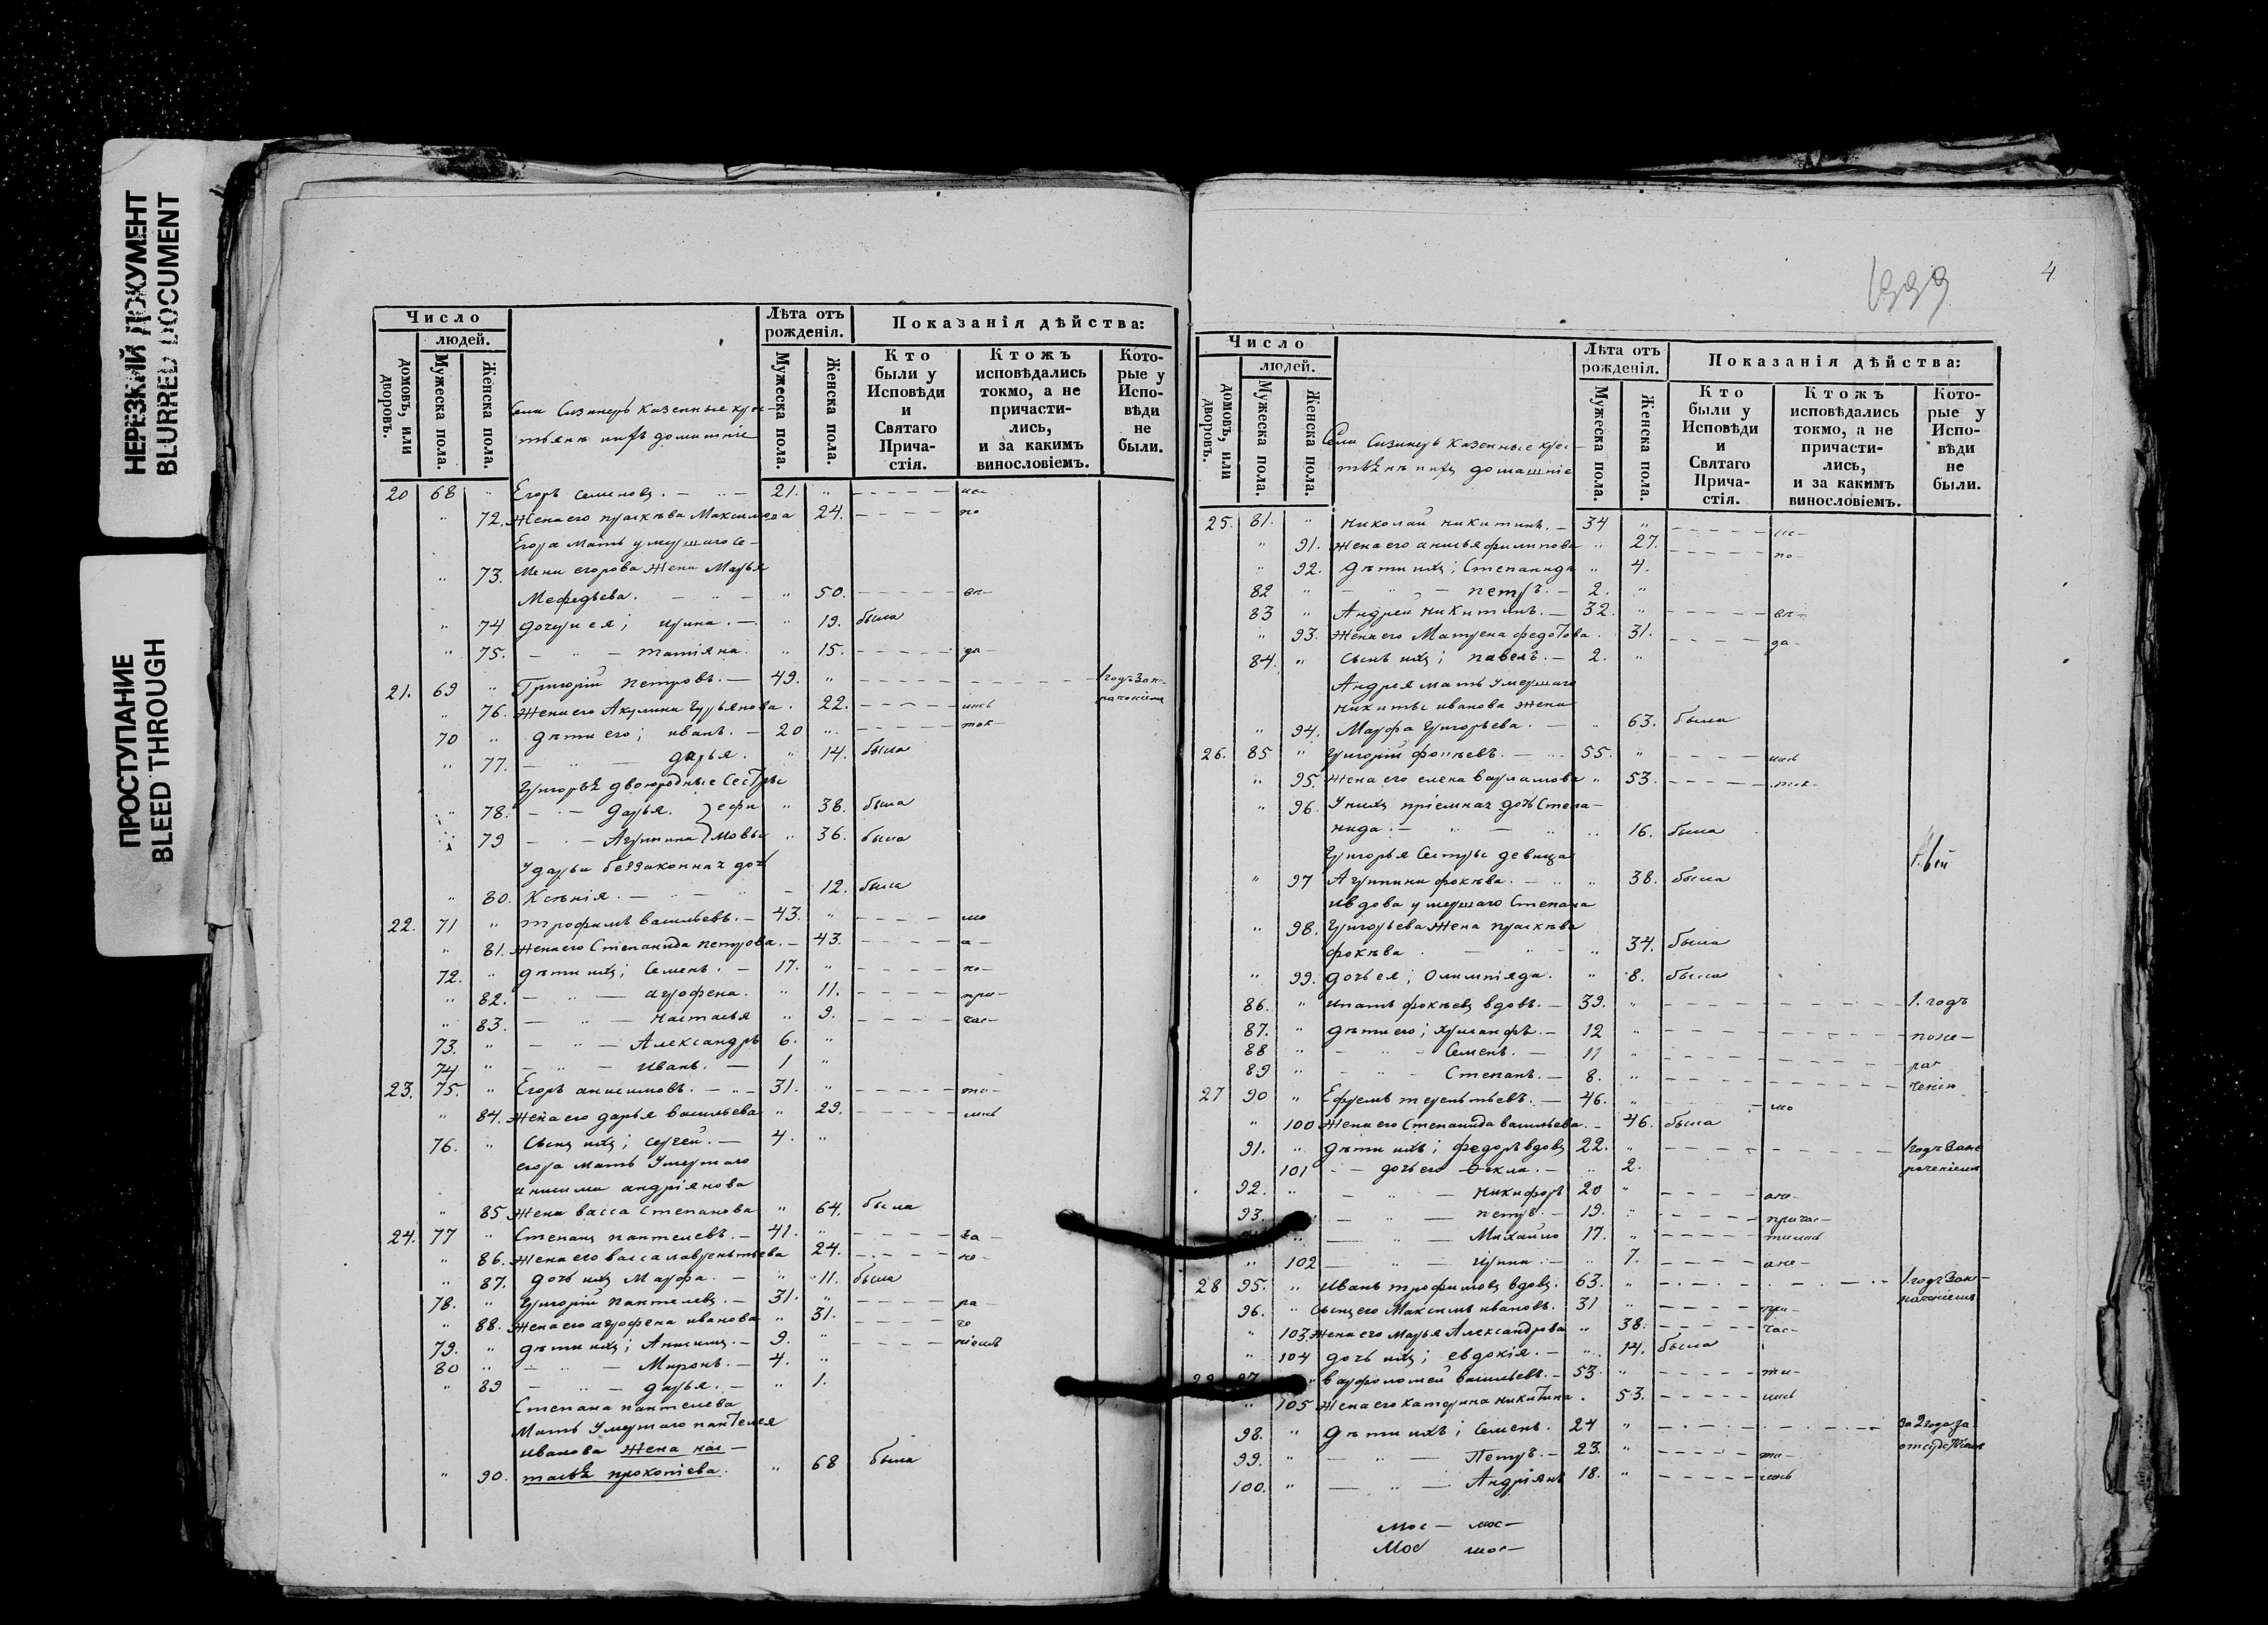 НЕРЕЗКИЙ ДОКУМЕНТ
BLURRED DOCUMENT
ПРОСТУПАНИЕ
BLEED THROUGH
Число
людей.
домовъ, или дворовъ.
Мужеска пола.
Женска пола.
Села Сизинеръ казенные крес-
тьяне и ихъ домашніе
Лѣта отъ рожденія.
Мужеска пола.
Женска пола.
Показанія дѣйства:
Кто были у Исповѣди и Святаго Прича-стія.
Ктожъ исповѣдались токмо, а не причасти-лись, и за какимъ винословіемъ.
Кото-рые у Испо-вѣди не были.
20 68 " Егоръ Семеновъ. — " — 21. "
" 72. Жена его праскѣва Максимова 24. по
Егора мать умершаго Се-
" 73. мена егорова жена Марья
Мефедьева. — " — " 50.
" 74 дочери ея; ирина. — " 19. была
" 75. — " — татіяна. " 15. да-
21. 69 " Григорій Петровъ. — 49. "
" 76. Жена его Акулина Гурьянова. 22.
70 " дѣти его; иванъ. — 20 " ток-
" 77. — " — дарья. " 14. была
Григорья двоюродные Сестры
" 78. — " — дарья. } ефи " 38. была
" 79 — " — Агрипина } мовы " 36. была
У дарьи беззаконная доч
" 80. Ксѣнія. — " — " - 12. была
22. 71 " трофимъ васильевъ. — 43. " мо
" 81. Жена его Степанида петрова. — 43. а-
72. " дѣти ихъ; Семенъ. — 17. " не-
" 82. — " — агрофена. " 11. при-
" 83. — " — настасья " 9. час-
73. " — " — Александръ 6. "
74 " — " — иванъ. — 1 "
23. 75. " Егоръ анисимовъ. — " — 31. " ти-
" 84. Жена его дарья васильева " 29. лись
76. " Сынъ ихъ; сергей. — 4. "
егора мать умершаго
анисима андріянова
" 85 Жена васса Степанова " 64. была
24. 77 " Степанъ пантелеевъ. — 41. " за
" 86. Жена его васса лаврентьева 24. не-
" 87. дочь ихъ Марфа. — " 11. была
78. " Григорій пантелеевъ. — 31. " ра-
" 88. Жена его агрофена иванова " 31. че
79. " дѣти ихъ; Анисимъ. — 9. " ніемъ
80 " — " — Миронъ. — 4. "
" 89 — " — дарья. — " 1.
Степана пантелева
мать умершаго пантелея
иванова Жена нас-
" 90. тасья прокопіева. " 68 была
4
1999
Число
людей.
домовъ, или дворовъ.
Мужеска пола.
Женска пола.
Села Сизинеръ казенные крес-
тьяне и ихъ домашніе
Лѣта отъ рожденія.
Мужеска пола.
Женска пола.
Показанія дѣйства:
Кто были у Исповѣди и Святаго Прича-стія.
Ктожъ исповѣдались токмо, а не причасти-лись, и за какимъ винословіемъ.
Кото-рые у Испо-вѣди не были.
25. 81. " николай никитинъ. — 34 " ис-
" 91. Жена его анисья филипова " 27. по-
" 92. дѣти ихъ; Степанида " 4.
82 " — " — петръ. — 2. "
83 " Андрей никитинъ. — 32. "
" 93. Жена его Матрена федотова. 31. да-
84. " Сынъ ихъ; павелъ. — 2. "
Андрея мать умершаго
никиты иванова жена
" 94. Марфа григорьева. — " 63. была
26. 85 " Григорій фокѣевъ. — 55. " лись
" 95. Жена его елена варламова " 53. ток-
" 96. У нихъ пріемная дочь Степа-
нида. — " — " 16. была
Григорья Сестры девица
" 97 Агрипина фокѣва. — " 38. была
и вдова умершаго Степана
" 98. Григорьева Жена праскѣва
фокѣва. — " 34. была
" 99. дочь ея; Олимпіяда. " 8. была
86. " ипатъ фокѣевъ вдовъ. — 39. " 1. годъ
87. " дѣти его; хрисанфъ. — 12 " по не-
88 " — " — Семенъ. — 11 " ра-
89 " — " — Степанъ. — 8. " ченію
27 90 " Ефремъ терентьевъ. — 46. " мо
" 100 Жена его Степанида васильева. — 46. была
91. " дѣти ихъ; федоръ вдовъ 22. " 1 годъ за не
101 — дочь его Ѳекла. — " 2. раченіемъ
92. " — " — никифоръ 20 " а не-
93. — " — петръ. — 19. " причас-
" — " — Михайло 17. " тились
" 102 — " — ирина. — " 7. а не-
28 95. " иванъ трофимовъ вдовъ. 63. "
96. " Сынъ его Максимъ ивановъ. 31 " при-
" 103. Жена его Марья Александрова " 38. час-
" 104 дочь ихъ; евдокія. — " 14. была
" варфоломей васильевъ. — 53 " ти-
" 105 Жена его катерина никитина. 53. лись
98. " дѣти ихъ; Семенъ. 24 " за 2 года за
99. " — " — Петръ. — 23. "
100. " — " — Андріянъ 18. "